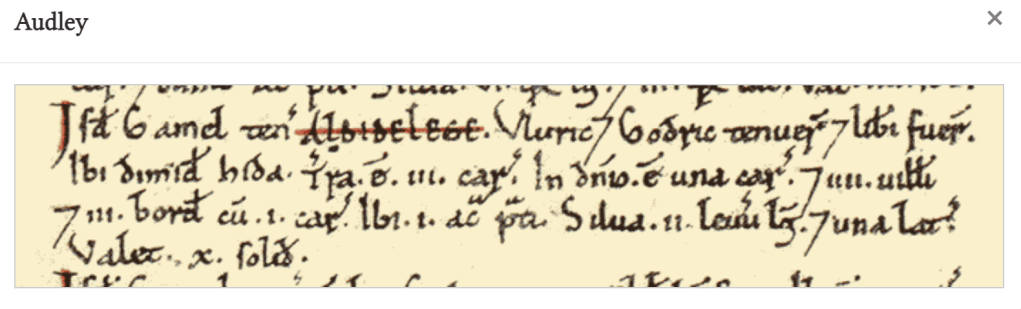 Audley
Isđ Gamel ten' ALDIDELEGE. Vluric ⁊ Godric tenuer̄ ⁊ libi fuer̄.
Ibi dimiđ hida. T'ra.ē. III. car'. In dn̄io.ē una car'. ⁊ IIII. uilłi
⁊ III. borđ cū .I. car'. Ibi .I. ac̄ p̄ti. Silua .II. leuu lḡ. ⁊ una lat'.
Valet. X. soliđ.